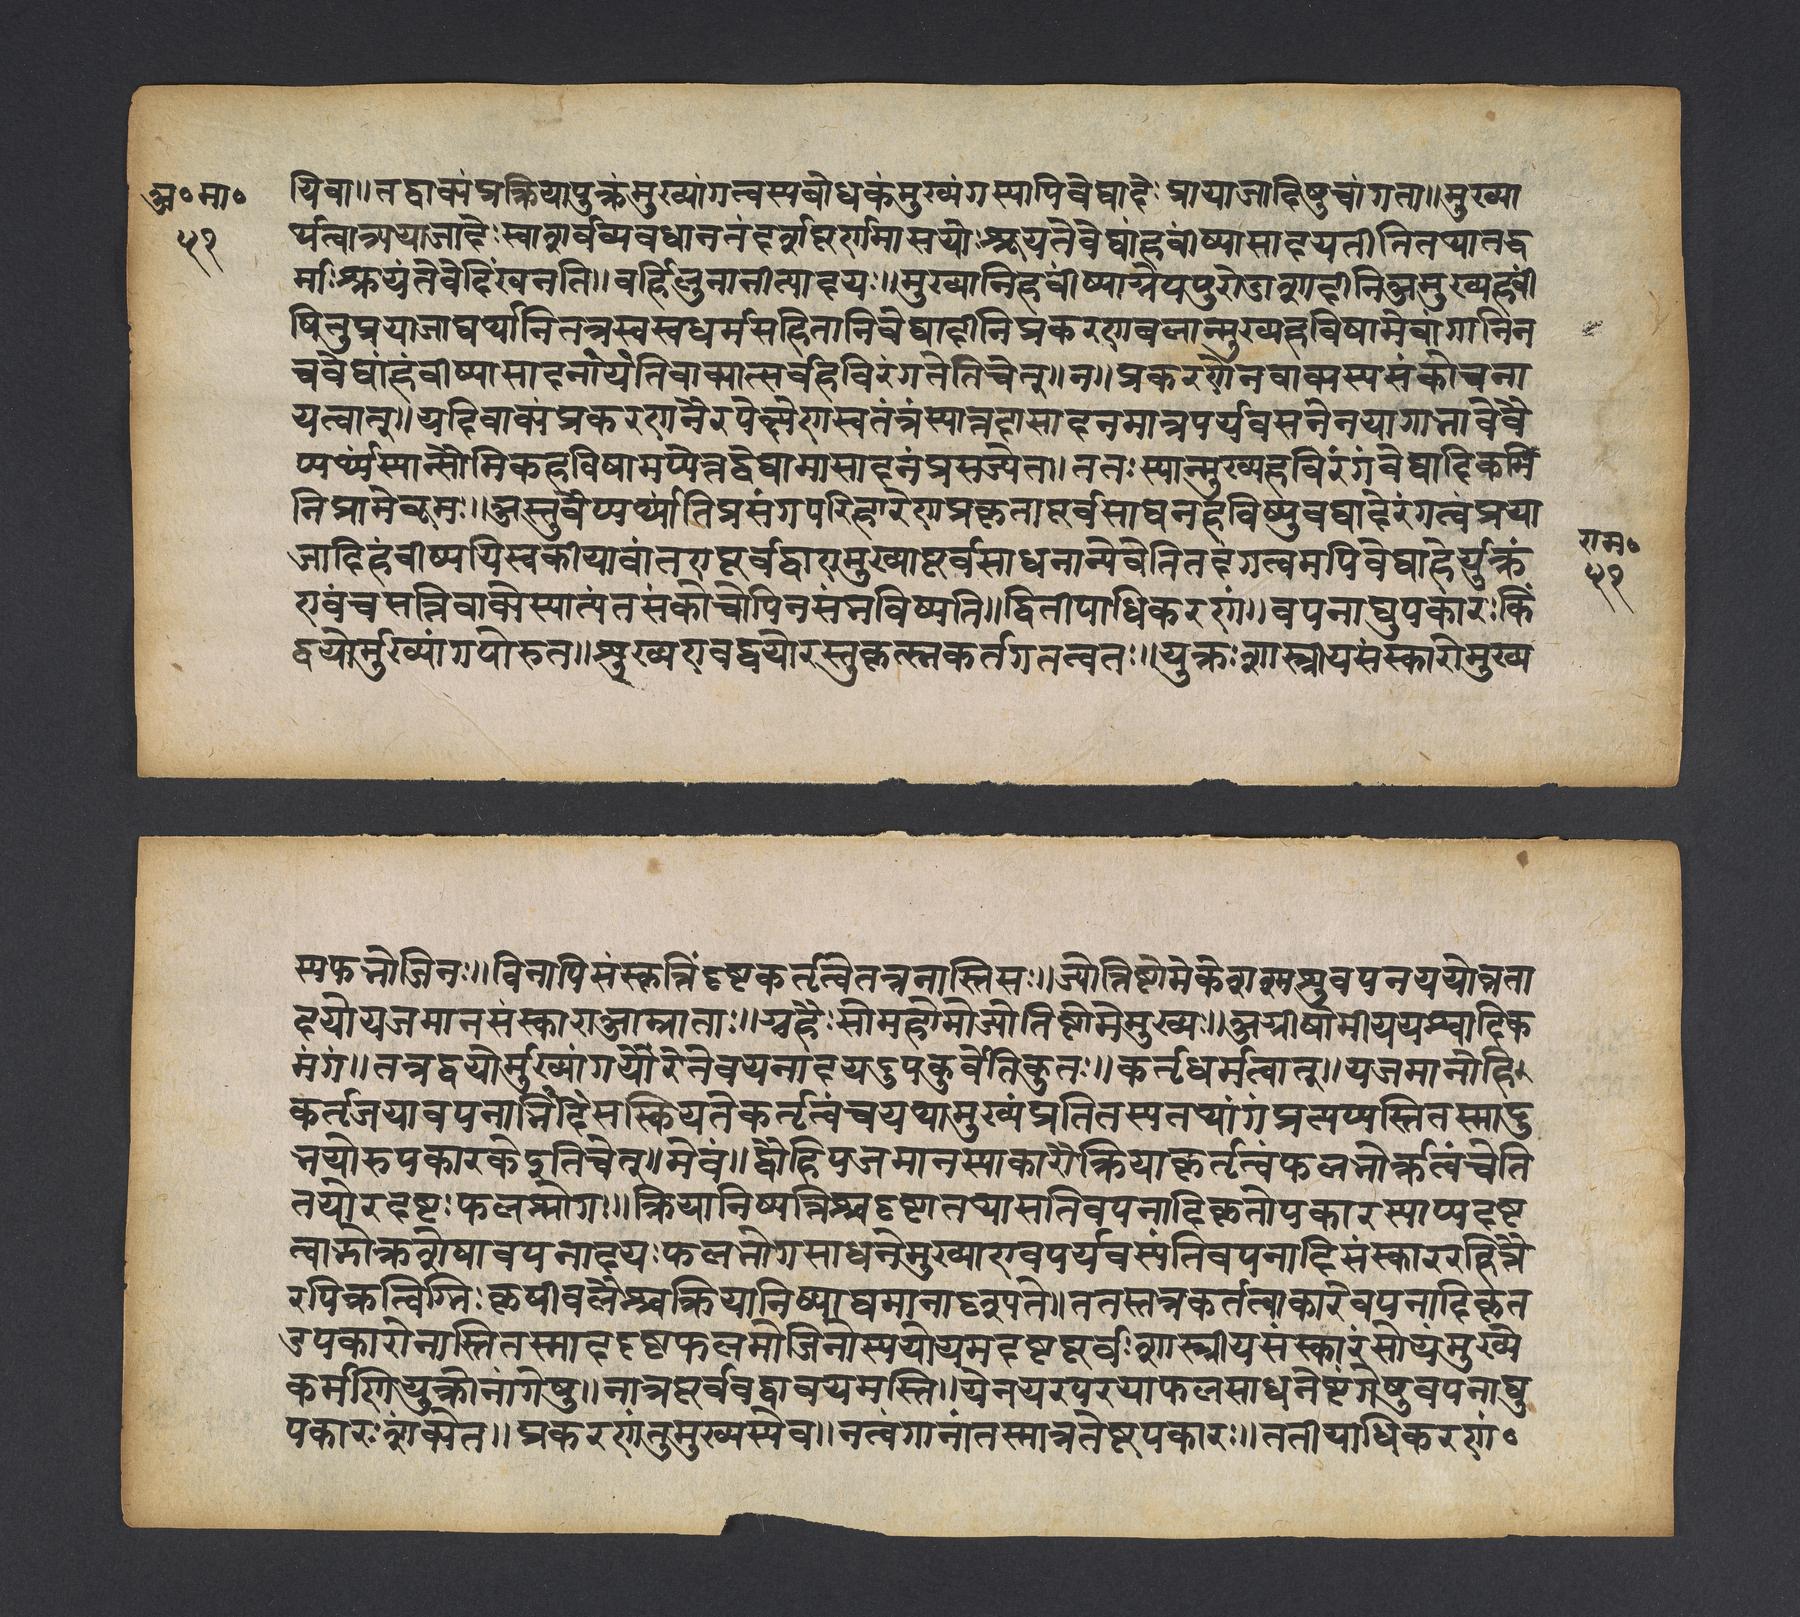 अ॰मा॰
५१
यिवा॥तद्वाक्यंप्रक्रियायुक्तंमुख्यांगत्वस्यबोधकंमुख्यंगस्यापिवेद्यादेः प्रायाजादिषुचांगता॥मुख्या
र्थ्यत्वात्प्रयाजादेः स्वापूर्वव्यवधानतं दर्शपूर्णमासयोः श्रूयतेवेद्यांहवींष्यासादयतीतितथातद्ध
र्माः श्रूयंतेवेदिंखनति॥बर्हिर्लुनातीत्यादयः॥मुख्यानिहवींष्याग्नेयपुरोडाशादीनिअमुख्यहवीं
षितुप्रयाजाद्यर्थ्यानितत्रस्वस्वधर्मसहितानिवेद्यादीनिप्रकरणबलान्मुख्यहविषामेवांगानिन
चवेद्यांहवींष्यासादनीयंतिवाक्यात्सर्वहविरंगतेतिचेत्॥न॥प्रकरणेनवाक्यस्यसंकोचना
यत्वात्॥यदिवाक्यंप्रकरणनैरपेक्ष्येणस्वतंत्रंस्यात्तदासादनमात्रपर्यवसनेनयागानावेवै
यर्थ्यंस्यात्सौमिकहविषामप्येतद्वेद्यामासादनंप्रसज्येत॥ततः स्यान्मुख्यहविरंगंवेद्यादिकमि
तिप्राप्तेब्रूमः॥अस्तुवैयर्थ्यातिप्रसंगपरिहारेणप्रकृतापूर्वसाधनहविष्षुवेद्यादेरंगत्वंप्रया
जादिहवींष्यपिस्वकीयावांतरापूर्वद्वारामुख्यापूर्वसाधनान्येवेतितदंगत्वमपिवेद्यादेर्युक्तं
एवंचसतिवाक्यस्यात्यंतसंकोचोपिनसंभविष्यति॥द्वितीयाधिकरणं॥वपनाद्युपकारः किं
द्वयोर्मुख्यांगयोरुत॥मुख्यएवद्वयोरस्तुकृत्स्नकर्तगतत्वतः॥युक्तः शास्त्रीयसंस्कारोमुख्य
राम॰
५१
स्यफलभोजिनः॥विनापिसंस्कृतिंदृष्टकर्तृत्वेतत्रनास्तिसः॥ज्योतिष्टोमेकेशश्मश्रुवपनपयोव्रता
दयोयजमानसंस्काराआम्नाताः॥ग्रहैः सोमहोमोज्योतिष्टोमेमुख्यः॥अग्नीषोमीयपश्वादिक
मंगं॥तत्रद्वयोर्मुख्यांगयोरेतेवपनादयउपकुर्वंतिकुतः॥कर्तृधर्मत्वात्॥यजमानोहि
कर्तृतयावपनादिभिः संस्क्रियतेकर्तृत्वंचयथामुख्यंप्रतितस्यतथांगंप्रत्यप्यस्तितस्मादु
भयोरुपकारकेइतिचेत्॥मैवं॥द्वौहियजमानस्याकारौक्रियाकर्तृत्वंफलभोक्तृत्वंचेति
तयोरदृष्टः फलभोगः॥क्रियानिष्पत्तिश्चदृष्टातथासतिवपनादिकृतोपकारस्याप्यदृष्ट
त्वाद्भोक्तृशेषावपनादयः फलभोगसाधनेमुख्याएवपर्यवस्यंतिवपनादिसंस्काररहितै
रपिऋत्विग्भिः कृषीवलैश्चक्रियानिष्पाद्यमानादृश्यते॥ततस्तत्रकर्तृत्वाकारेवपनादिकृत
उपकारोनास्तितस्माददृष्टफलभोजिनोस्ययोयमदृष्टपूर्वः शास्त्रीयसंस्कारंसोयंमुख्ये
कर्मणियुक्तोनांगेषु॥नात्रपूर्ववद्वाक्यमस्ति॥येनपरंपरयाफलसाधनेष्वंगेषुवपनाद्यु
पकारः शंक्येत॥प्रकरणंतुमुख्यस्यैव॥नत्वंगानांतस्मान्नतेषूपकारः॥ततीयाधिकरणं॰